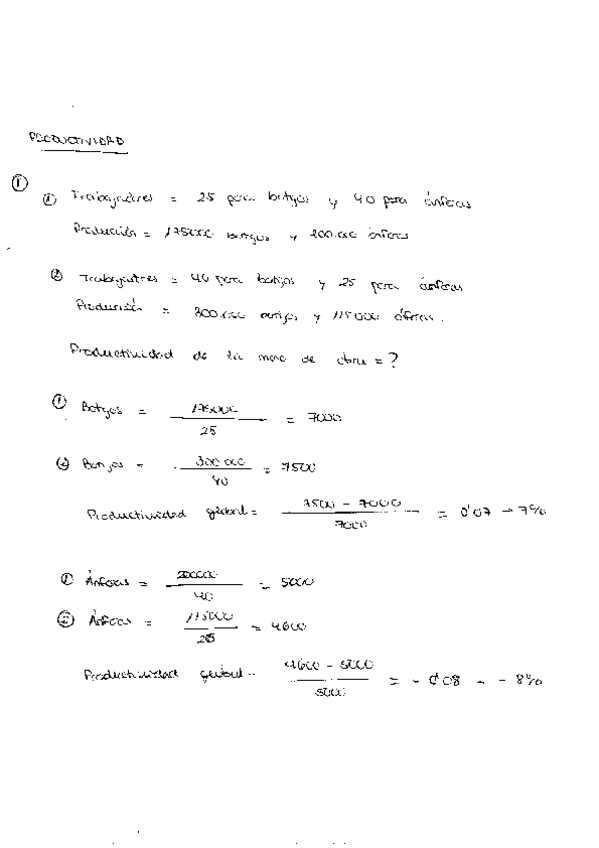 PRODUCTIVIDAD
①
① Trabajadores = 25 para botijos y 40 para ánforas
Producción = 175000 botijos y 200.000 ánforas
② Trabajadores = 40 para botijos y 25 para ánforas
Producción = 300.000 botijos y 115000 áforas.
Productividad de la mano de obra = ?
① Botijos = 175000 / 25 = 7000
② Botijos = 300 000 / 40 = 7500
Productividad global = 7500 - 7000 / 7000 = 0'07 → 7%
① Ánforas = 200000 / 40 = 5000
② Ánforas = 115000 / 25 = 4600
Productividad global = 4600 - 5000 / 5000 = - 0'08 - - 8%